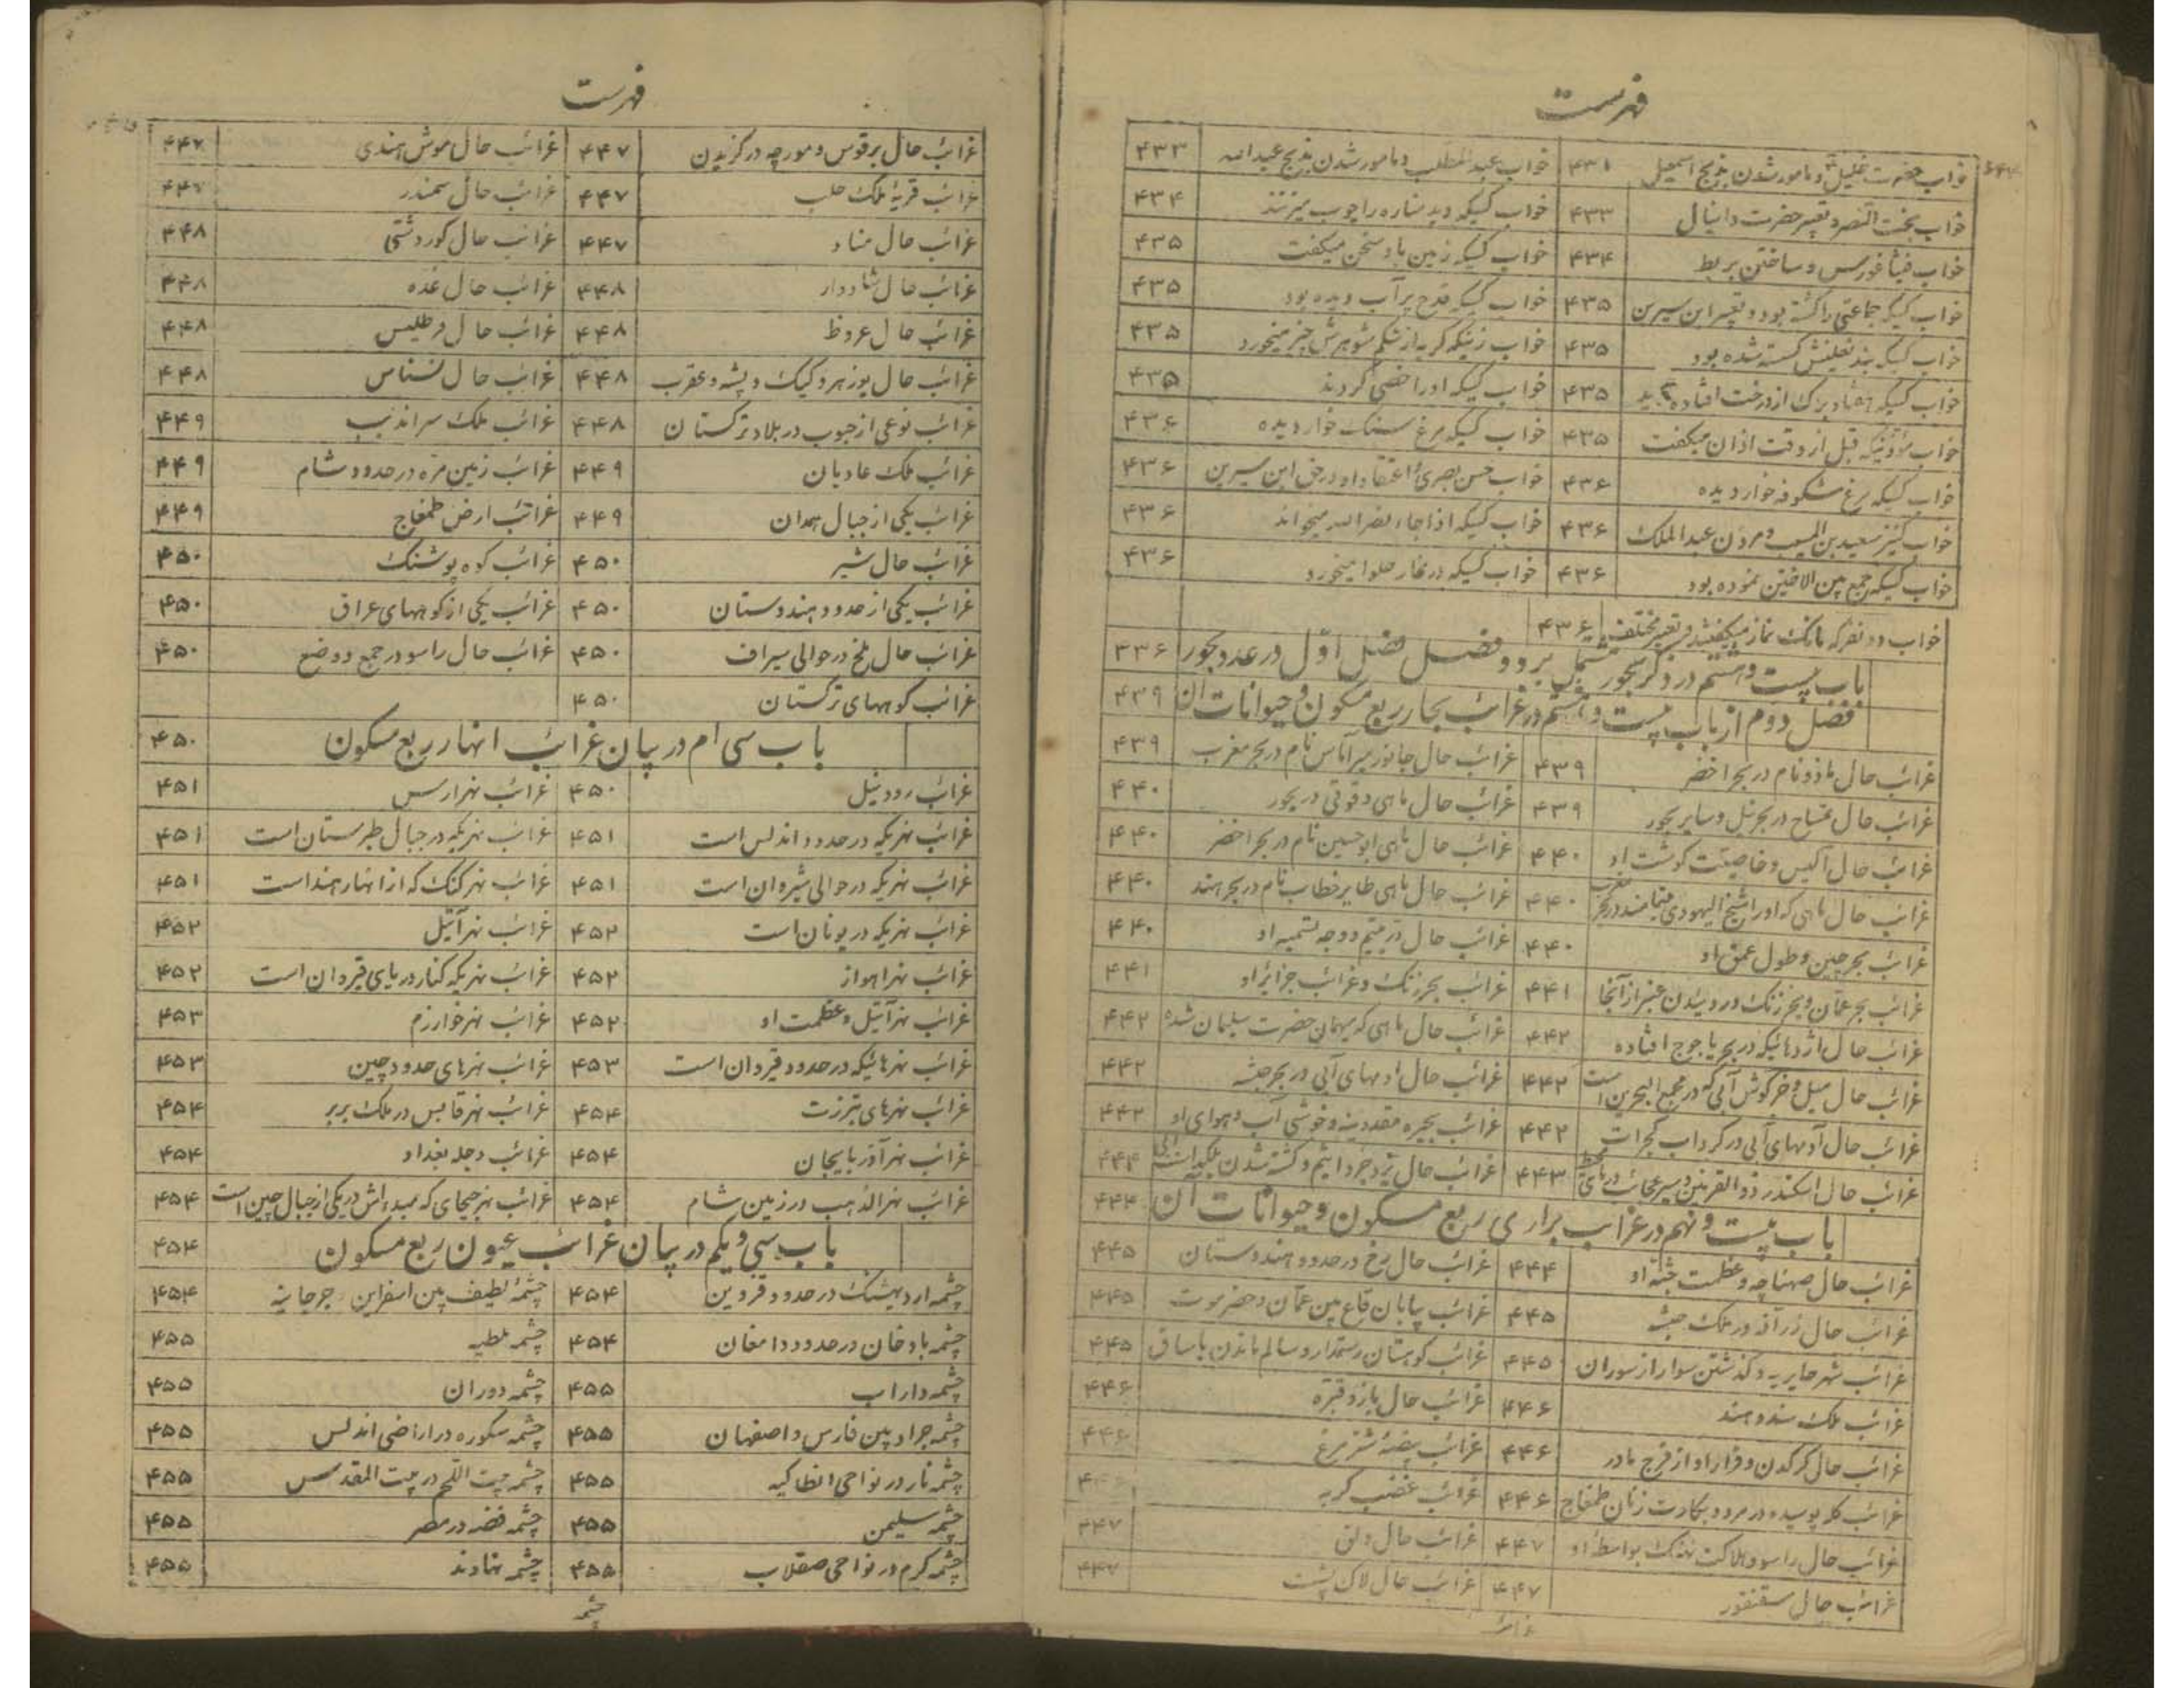 فهرست
خواب حضرت خلیل و مامور شدن بذبح اسمعیل ۴۳۱ خواب عبدالمطلب و مامور شدن بذبح عبدالله ۴۳۳
خواب بخت النصر و تعبیر حضرت دانیال ۴۳۳ خواب کسیکه دید ستاره را چوب میزنند ۴۳۴
خواب فیثاغورس و ساختن بربط ۴۳۴ خواب کسیکه زمین با و سخن میکفت ۴۳۵
خواب کسیکه جماعتی را کشته بود و تعبیر ابن سیرین ۴۳۵ خواب کسیکه قدح پر آب دیده بود ۴۳۵
خواب کسیکه بند نعلینش کسسته شده بود ۴۳۵ خواب زنیکه کربه از شکم شوهرش چیز میخورد ۴۳۵
خواب کسیکه هفتاد برک از درخت افتاده دید ۴۳۵ خواب کسیکه او را خصی کردند ۴۳۵
خواب مؤذنیکه قبل از وقت اذان میکفت ۴۳۵ خواب کسیکه مرغ سنک خوار دیده ۴۳۶
خواب کسیکه مرغ شکوفه خوار دیده ۴۳۶ خواب حسن بصری و اعتقاد او در حق ابن سیرین ۴۳۶
خواب کنیز سعید بن المسیب و مردن عبدالملک ۴۳۶ خواب کسیکه اذا جاء نصر الله میخواند ۴۳۶
خواب کسیکه جمع بین الاختین نموده بود ۴۳۶ خواب کسیکه در نماز حلوا میخورد ۴۳۶
خواب دو نفر که بانک نماز میکفتند و تعبیر مختلف ۴۳۶
باب بیست و هشتم در ذکر بحور مشتمل بر دو فصل فصل اول در عدد بحور ۳۳۶
فصل دوم از باب بیست و هشتم در غرائب بحار ربع مسکون و حیوانات ان ۴۳۹
غرائب حال نام در بحر اخضر ۴۳۹ غرائب حال جانور نام در بحر مغرب ۴۳۹
غرائب حال تمساح در بحر نیل و سایر بحور ۴۳۹ غرائب حال ماهی دقوقی در بحور ۴۴۰
غرائب حال اکیس و خاصیت کوشت او ۴۴۰ غرائب حال ماهی ابوحسین نام در بحر اخضر ۴۴۰
غرائب حال ماهی که او را شیخ الیهودی مینامند در بحر مغرب ۴۴۰ غرائب حال ماهی طایر خطاب نام در بحر هند ۴۴۰
غرائب بحر چین و طول عمق او ۴۴۰ غرائب حال در یتیم و وجه تسمیه او ۴۴۰
غرائب بحر عمان و بحر زنک و روئیدن عنبر از آنجا ۴۴۱ غرائب بحر زنک و غرائب جزایر او ۴۴۱
غرائب حال اژدهائیکه در بحر یاجوج افتاده ۴۴۲ غرائب حال ماهی که میهمان حضرت سلیمان شده ۴۴۲
غرائب حال میل و خرکوش آبی که در مجمع البحرین است ۴۴۲ غرائب حال ادمهای آبی در بحر حبشه ۴۴۲
غرائب حال آدمهای آبی در کرداب کجرات ۴۴۲ غرائب بحیره و خوشی آب و هوای او ۴۴۲
غرائب حال اسکندر ذوالقرنین و سیر عجائب دریای محیط ۴۴۳ غرائب حال یزدجرد اثیم و کشته شدن ۴۴۴
باب بیست و نهم در غرایب براری ربع مسکون و حیوانات آن ۴۴۴
غرائب حال صهناجه و عظمت جثه او ۴۴۴ غرائب حال رخ در حدود هندوستان ۴۴۵
غرائب حال زرافه در ملک حبشه ۴۴۵ غرائب بیابان قاع بین عمان و حضرموت ۴۴۵
غرائب شهر جابریه و کذشتن سوار از سوران ۴۴۵ غرائب کوهستان رستمدار و سالم ماندن باسناق ۴۴۵
غرائب ملک سند و هند ۴۴۶ غرائب حال باز و قبره ۴۴۶
غرائب حال کرکدن و فرار او از فرج مادر ۴۴۶ غرائب بیضه شتر مرغ ۴۴۶
غرائب کله پوسیده در مرو و بکارت زنان طمغاج ۴۴۶ غرائب غضب کربه
غرائب حال راسو و هلاکت نهنک بواسطه او ۴۴۷ غرائب حال دلق ۴۴۷
غرائب حال سقنقور ۴۴۷ غرائب حال لاک پشت ۴۴۷
غرائب
فهرست
غرائب حال برقوس و مورچه در کزیدن ۴۴۷ غرائب حال موش هندی ۴۴۷
غرائب قریهٔ ملک حلب ۴۴۷ غرائب حال سمندر ۴۴۷
غرائب حال مناد ۴۴۷ غرائب حال کور دشتی ۴۴۸
غرائب حال شادوار ۴۴۸ غرائب حال غده ۴۴۸
غرائب حال عروظ ۴۴۸ غرائب حال فرطلیس ۴۴۸
غرائب حال یوز هر و کیک و پشه و عقرب ۴۴۸ غرائب حال نسناس ۴۴۸
غرائب نوعی از حبوب در بلاد ترکستان ۴۴۸ غرائب ملک سراندیب ۴۴۹
غرائب ملک عادیان ۴۴۹ غرائب زمین مزه در حدود شام ۴۴۹
غرائب یکی از جبال همدان ۴۴۹ غرائب ارض طمغاج ۴۴۹
غرائب حال شیر ۴۵۰ غرائب کوه پوشنک ۴۵۰
غرائب یکی از حدود هندوستان ۴۵۰ غرائب یکی از کوههای عراق ۴۵۰
غرائب حال ملخ در حوالی سیراف ۴۵۰ غرائب حال راسو در جمع دو ضع ۴۵۰
غرائب کوههای ترکستان ۴۵۰
باب سی ام در بیان غرائب انهار ربع مسکون ۴۵۰
غرائب رود نیل ۴۵۰ غرائب نهر ارس ۴۵۱
غرائب نهریکه در حدود اندلس است ۴۵۱ غرائب نهریکه در جبال طبرستان است ۴۵۱
غرائب نهریکه در حوالی شیروان است ۴۵۱ غرائب نهر کنک که از انهار هند است ۴۵۱
غرائب نهریکه در یونان است ۴۵۲ غرائب نهر آتیل ۴۵۲
غرائب نهر اهواز ۴۵۲ غرائب نهریکه کنار دریای قیروان است ۴۵۲
غرائب نهر آتیل و عظمت او ۴۵۲ غرائب نهر خوارزم ۴۵۳
غرائب نهرهائیکه در حدود قیروان است ۴۵۳ غرائب نهرهای حدود چین ۴۵۳
غرائب نهرهای تبرزت ۴۵۴ غرائب نهر قابس در ملک بربر ۴۵۴
غرائب نهر آذربایجان ۴۵۴ غرائب دجله بغداد ۴۵۴
غرائب نهر الذهب در زمین شام ۴۵۴ غرائب نهر جیحای که مبدءاش در یکی از جبال چین است ۴۵۴
باب سی و یکم در بیان غرائب عیون ربع مسکون ۴۵۴
چشمه اردبهشتک در حدود قزوین ۴۵۴ چشمهٔ لطیف بین اسفراین و جرجانیه ۴۵۴
چشمه بادخان در حدود دامغان ۴۵۴ چشمه ملطیه ۴۵۵
چشمه داراب ۴۵۵ چشمه دوران ۴۵۵
چشمه جراد بین فارس و اصفهان ۴۵۵ چشمه سکوره در اراضی اندلس ۴۵۵
چشمه نار در نواحی انطاکیه ۴۵۵ چشمه بیت اللحم در بیت المقدس ۴۵۵
چشمه سلیمن ۴۵۵ چشمه فضه در مصر ۴۵۵
چشمه کرم در نواحی صقلاب ۴۵۵ چشمه نهاوند ۴۵۵
چشمه